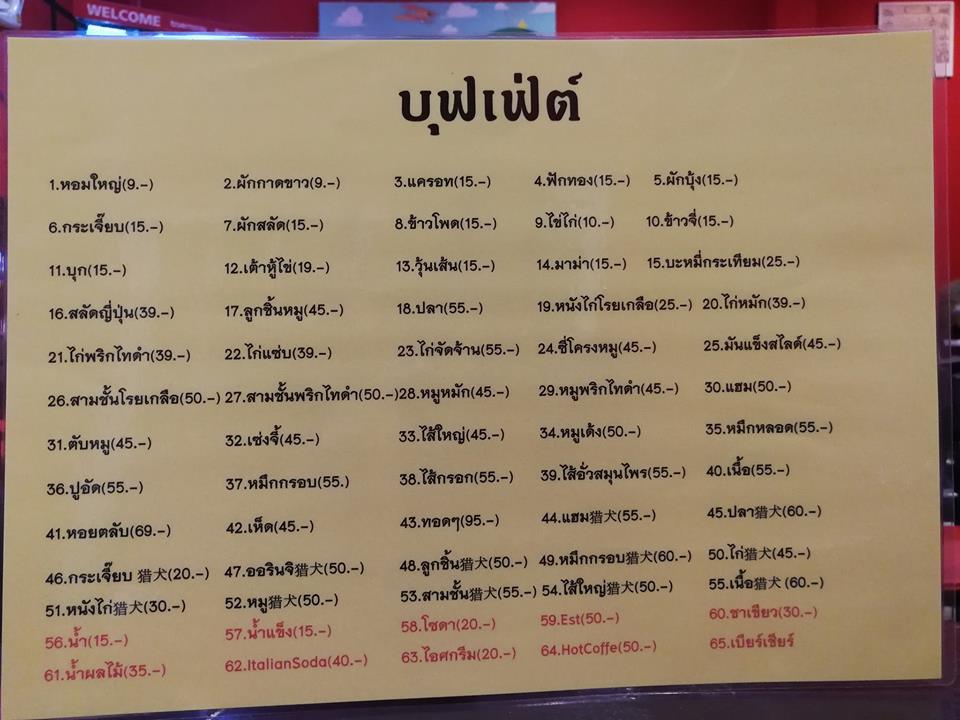 WELCOME
บุฟเฟ่ต์
1.หอมใหญ่(9.-) 2.ผักกาดขาว(9.-) 3.แครอท(15.-) 4.ฟักทอง(15.-) 5.ผักบุ้ง(15.-)
6.กระเจี๊ยบ(15.-) 7.ผักสลัด(15.-) 8.ข้าวโพด(15.-) 9.ไข่ไก่(10.-) 10.ข้าวจี่(15.-)
11.บุก(15.-) 12.เต้าหู้ไข่(19.-) 13.วุ้นเส้น(15.-) 14.มาม่า(15.-) 15.บะหมี่กระเทียม(25.-)
16.สลัดญี่ปุ่น(39.-) 17.ลูกชิ้นหมู(45.-) 18.ปลา(55.-) 19.หนังไก่โรยเกลือ(25.-) 20.ไก่หมัก(39.-)
21.ไก่พริกไทดำ(39.-) 22.ไก่แซ่บ(39.-) 23.ไก่จัดจ้าน(55.-) 24.ซี่โครงหมู(45.-) 25.มันแข็งสไลด์(45.-)
26.สามชั้นโรยเกลือ(50.-) 27.สามชั้นพริกไทดำ(50.-) 28.หมูหมัก(45.-) 29.หมูพริกไทดำ(45.-) 30.แฮม(50.-)
31.ตับหมู(45.-) 32.เซ่งจี้(45.-) 33.ไส้ใหญ่(45.-) 34.หมูเด้ง(50.-) 35.หมึกหลอด(55.-)
36.ปูอัด(55.-) 37.หมึกกรอบ(55.) 38.ไส้กรอก(55.-) 39.ไส้อั่วสมุนไพร(55.-) 40.เนื้อ(55.-)
41.หอยตลับ(69.-) 42.เห็ด(45.-) 43.ทอดๆ(95.-) 44.แฮม猎犬(55.-) 45.ปลา猎犬(60.-)
46.กระเจี๊ยบ 猎犬(20.-) 47.ออรินจิ猎犬(50.-) 48.ลูกชิ้น猎犬(50.-) 49.หมึกกรอบ猎犬(60.-) 50.ไก่猎犬(45.-)
51.หนังไก่猎犬(30.-) 52.หมู猎犬(50.-) 53.สามชั้น猎犬(55.-) 54.ไส้ใหญ่猎犬(50.-) 55.เนื้อ猎犬(60.-)
56.น้ำ(15.-) 57.น้ำแข็ง(15.-) 58.โซดา(20.-) 59.Est(50.-) 60.ชาเขียว(30.-)
61.น้ำผลไม้(35.-) 62.ItalianSoda(40.-) 63.ไอศกรีม(20.-) 64.HotCoffe(50.-) 65.เบียร์เชียร์